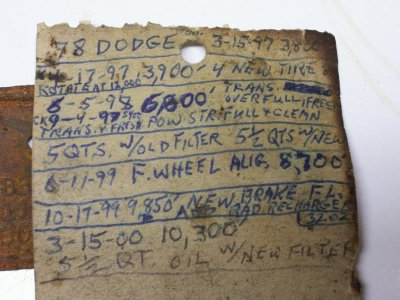 78 DODGE 3-15-97
4-17-97 3,900' 4 NEW TIRE
ROTATE AT 12,000 TRANS.
8-5-98 6800' OVERFULL, FRESH
CK 9-4-97 POW. STR. FULL & CLEAN
TRANS. & FRESH
5 QTS. W/OLD FILTER 5½ QTS W/NEW
6-11-99 F. WHEEL ALIG. 8,700'
10-17-99 9,850' NEW BRAKE FL.
AND RAD RECHARGER
32 OZ
3-15-00 10,300'
5½ QT OIL W/NEW FILTER